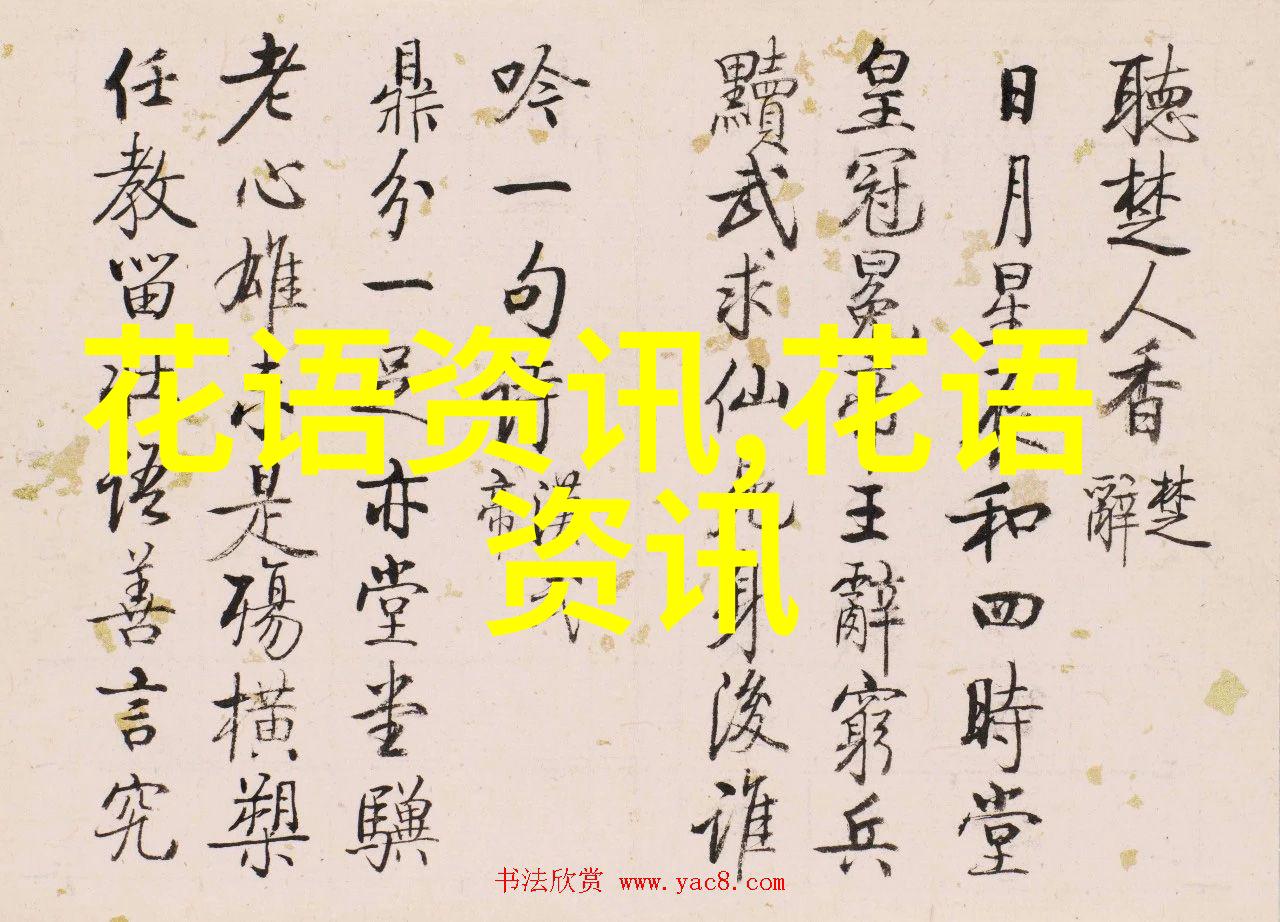 聽楚人香 楚辭
日月星辰和四時堂
皇冠冕帝王辭窮兵
黷武求仙身後誰
吟一句詩 漢武帝
鼎分一足亦堂堂驥
老心雄未是殤橫槊
任教留壮語善言究
花语资讯,花语
资讯
书法欣赏 www.yac8.com